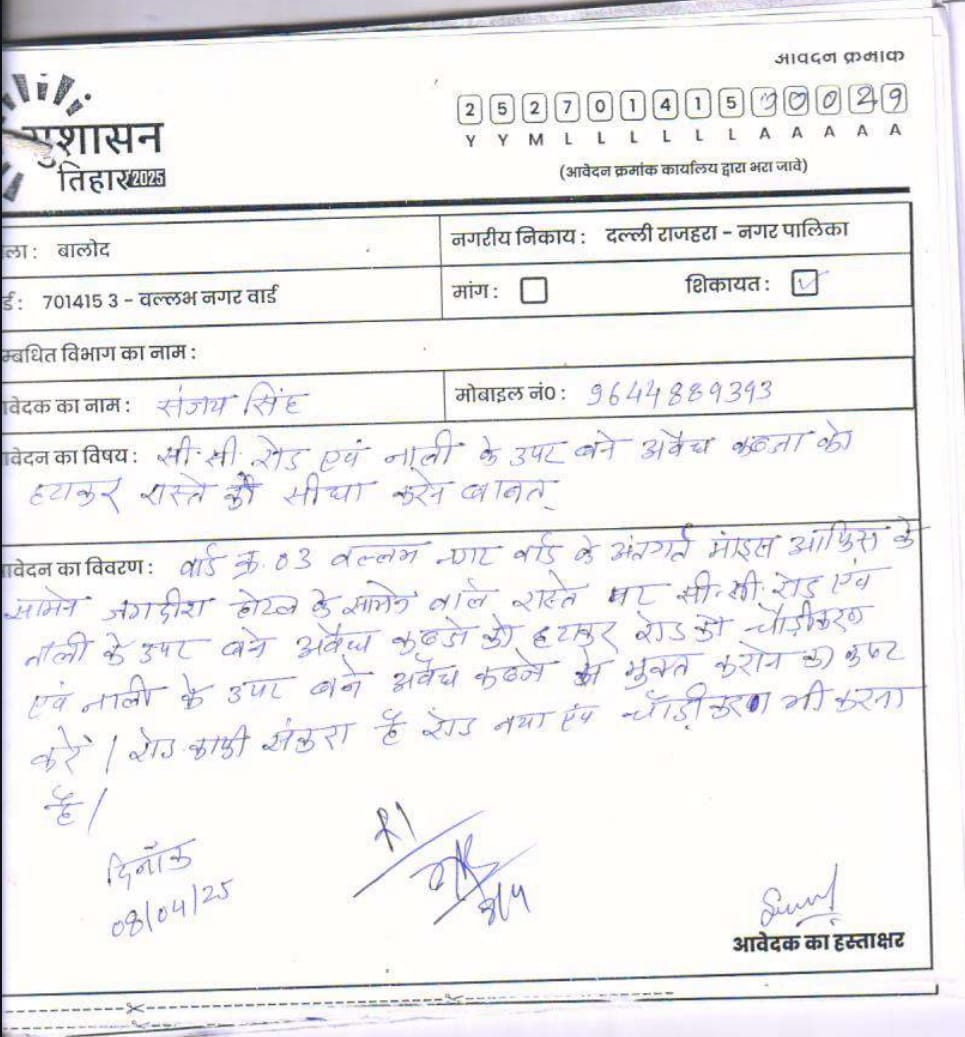 आवदन क्रमाक
2 5 2 7 0 1 4 1 5 0 0 0 2 9
Y Y M L L L L L L A A A A A
(आवेदन क्रमांक कार्यालय द्वारा भरा जावे)
सुशासन
तिहार 2025
ला : बालोद
नगरीय निकाय : दल्ली राजहरा - नगर पालिका
र्ड : 701415 3 - वल्लभ नगर वार्ड
मांग :
शिकायत : ✓
म्बधित विभाग का नाम :
वेदक का नाम : संजय सिंह
मोबाइल नं० : 9644889393
वेदन का विषय : सी.सी. रोड एवं नाली के उपर बने अवैध कब्जा को
हटाकर रास्ते को सीधा करने बाबत्
वेदन का विवरण : वार्ड क्र. 03 वल्लभ नगर वार्ड के अंतर्गत माइंस आफिस के
सामने जगदीश होटल के सामने वाले रास्ते पर सी.सी. रोड एवं
नाली के उपर बने अवैध कब्जे को हटाकर रोड को चौड़ीकरण
एवं नाली के उपर बने अवैध कब्जे से मुक्त कराने का कष्ट
करें / रोड काफी संकरा है रोड नया एंव चौड़ीकरण भी करना
है /
दिनाँक
08/04/25
8/4
आवेदक का हस्ताक्षर